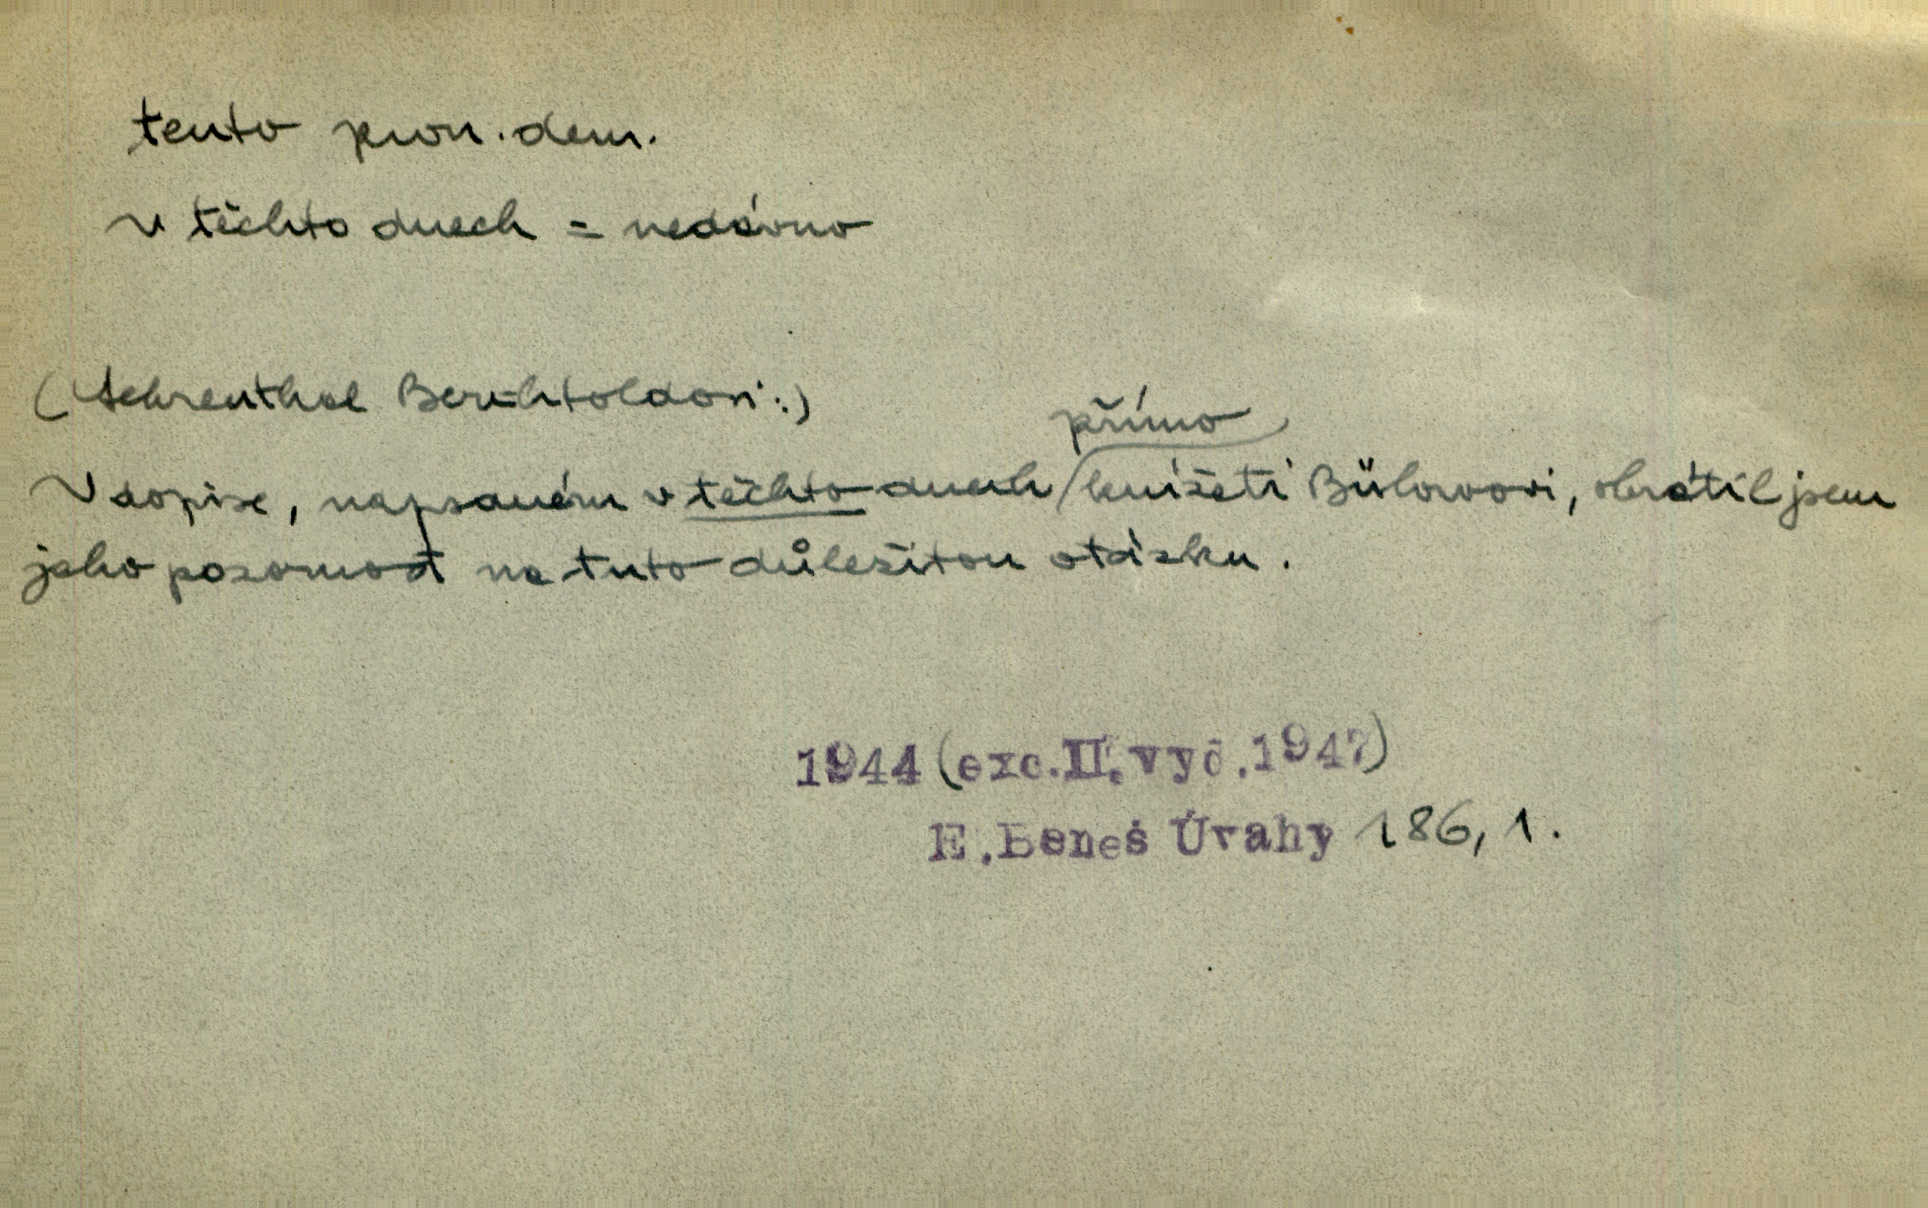 tento pron. dem.
v těchto dnech = nedávno
(Aehrenthal Berchtoldovi:)
přímo
V dopise, napsaném v těchto dnech knížeti Bülowovi, obrátil jsem
jeho pozornost na tuto důležitou otázku.
1944 (exc. II. vyd. 1947)
E. Beneš Úvahy 186, 1.